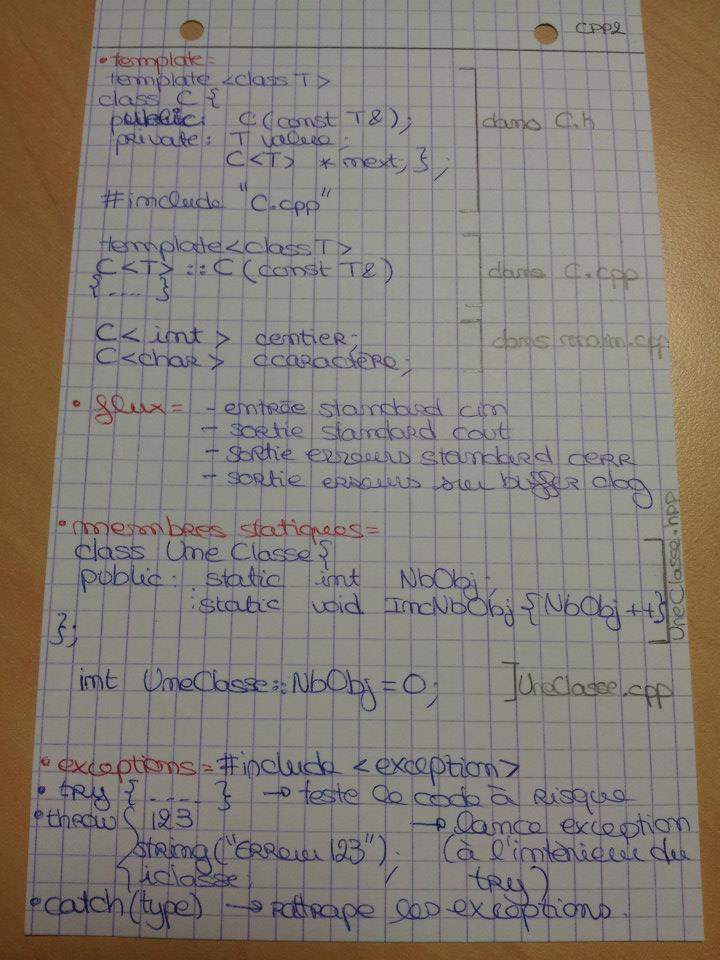 CPP2
• template=
template <class T>
class C {
public: C(const T&);
private: T value;
C<T> *next; };
dans C.h
#include "C.cpp"
template<class T>
C<T> :: C(const T&)
{.... }
dans C.cpp
C< int > centier;
C<char> ccaractère;
dans main.cpp
• flux= - entrée standard cin
- sortie standard cout
- sortie erreurs standard cerr
- sortie erreurs sur buffer clog
• membres statiques=
class UneClasse{
public: static int NbObj;
:static void IncNbObj {NbObj ++}
};
UneClasse.hpp
int UneClasse::NbObj = 0;
UneClasse.cpp
• exceptions= #include <exception>
• try { .... } → teste le code à risque
• throw { 123 → lance exception
string("Erreur 123"); (à l'intérieur du
classe; try)
• catch(type) → rattrape les exceptions.